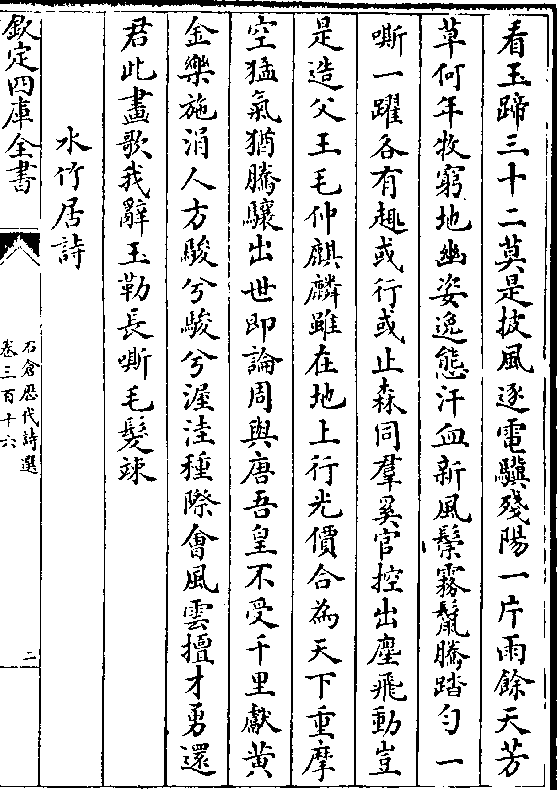 看玉蹄三十二莫是披風逐電驥殘陽一片雨餘天芳
草何年牧窮地幽姿逸態汗血新風鬃霧鬣騰踏勻一
嘶一躍各有趣或行或止森同羣奚官控出塵飛動豈
是造父王毛仲麒麟雖在地上行光價合為天下重摩
空猛氣猶騰驤出世即論周與唐吾皇不受千里獻黄
金樂施涓人方駿兮駿兮渥洼種際會風雲擅才勇還
君此畫歌我辭玉勒長嘶毛髮竦
水竹居詩
欽定四庫全書
石倉歴代詩選
卷三百十六
二